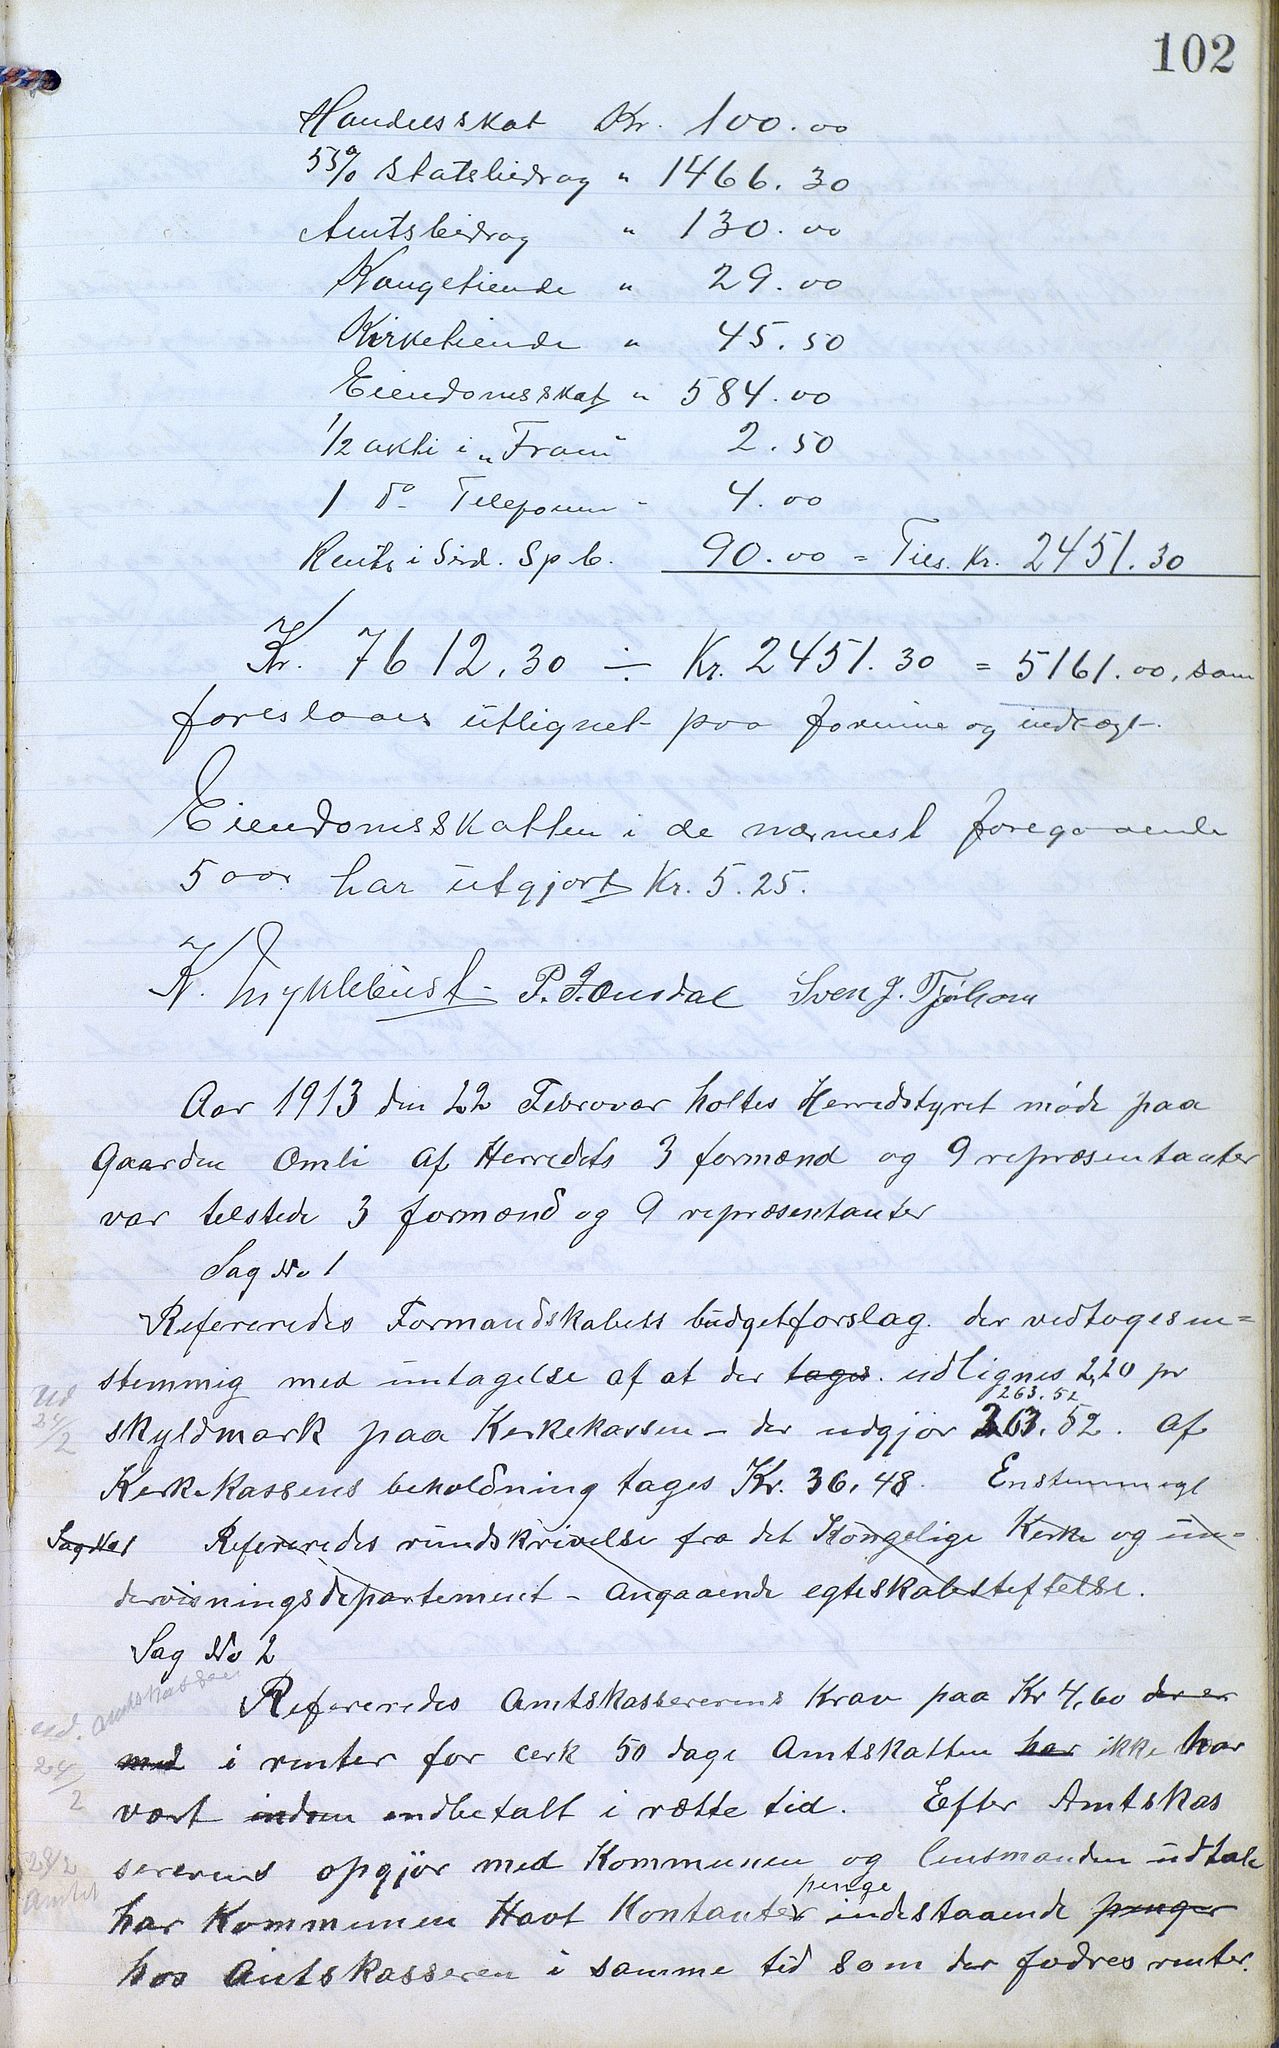 102
Handelsskat Kr. 100.00
55% Statsbidrag " 1466.30
Amtsbidrag " 130.00
Kongetiende " 29.00
Kirketiende " 45.50
Eiendomsskat " 584.00
1/2 akti i "Fram" 2.50
1 do Telefonen - 4.00
Rente i Sird. Spb. 90.00 = Tils. Kr. 2451.30
Kr. 7612,30 ÷ Kr. 2451.30 = 5161.00, som
foreslaaes utlignet paa formue og indtægt.
Eiendomsskatten i de nærmest foregaaende
5 aar har utgjort Kr. 5.25.
K. Myklebust P. J. Ousdal Sven J. Tjørhom
Aar 1913 den 22 Februar holtes Herredstyret møde paa
Gaarden Omli af Herredets 3 formænd og 9 repræsentanter
var telstede 3 formænd og 9 repræsentanter
Sag No 1
Refereredes Formandskabets budgetforslag. der vedtoges en=
stemmig med untagelse af at der tages. udlignes 2,20 pr
263.52
Ud 24/2
skyldmark paa Kerkekassen - der udgjør 263.52. Af
Kerkekassens beholdning tages Kr. 36,48. Enstemmegt
Sag No 1 Refereredes rundskrivelse fra det Kongelige Kerke og un-
dervisningsdepartement - angaaende egteskabsteftelse.
Sag No 2
ud. Amtskasser 24/2
Refereredes Amtskassererens Krav paa Kr 4,60 der er
med i renter for cerk 50 dage Amtskatten har ikke har
vært indom indbetalt i rætte tid. Efter Amtskas
sererens opgjør med Kommunen og lensmanden udtale
28/2 Amtet
penge
har Kommunen Havt Kontanter indestaaende penger
hos Amtskasseren i samme tid som der fodres renter.